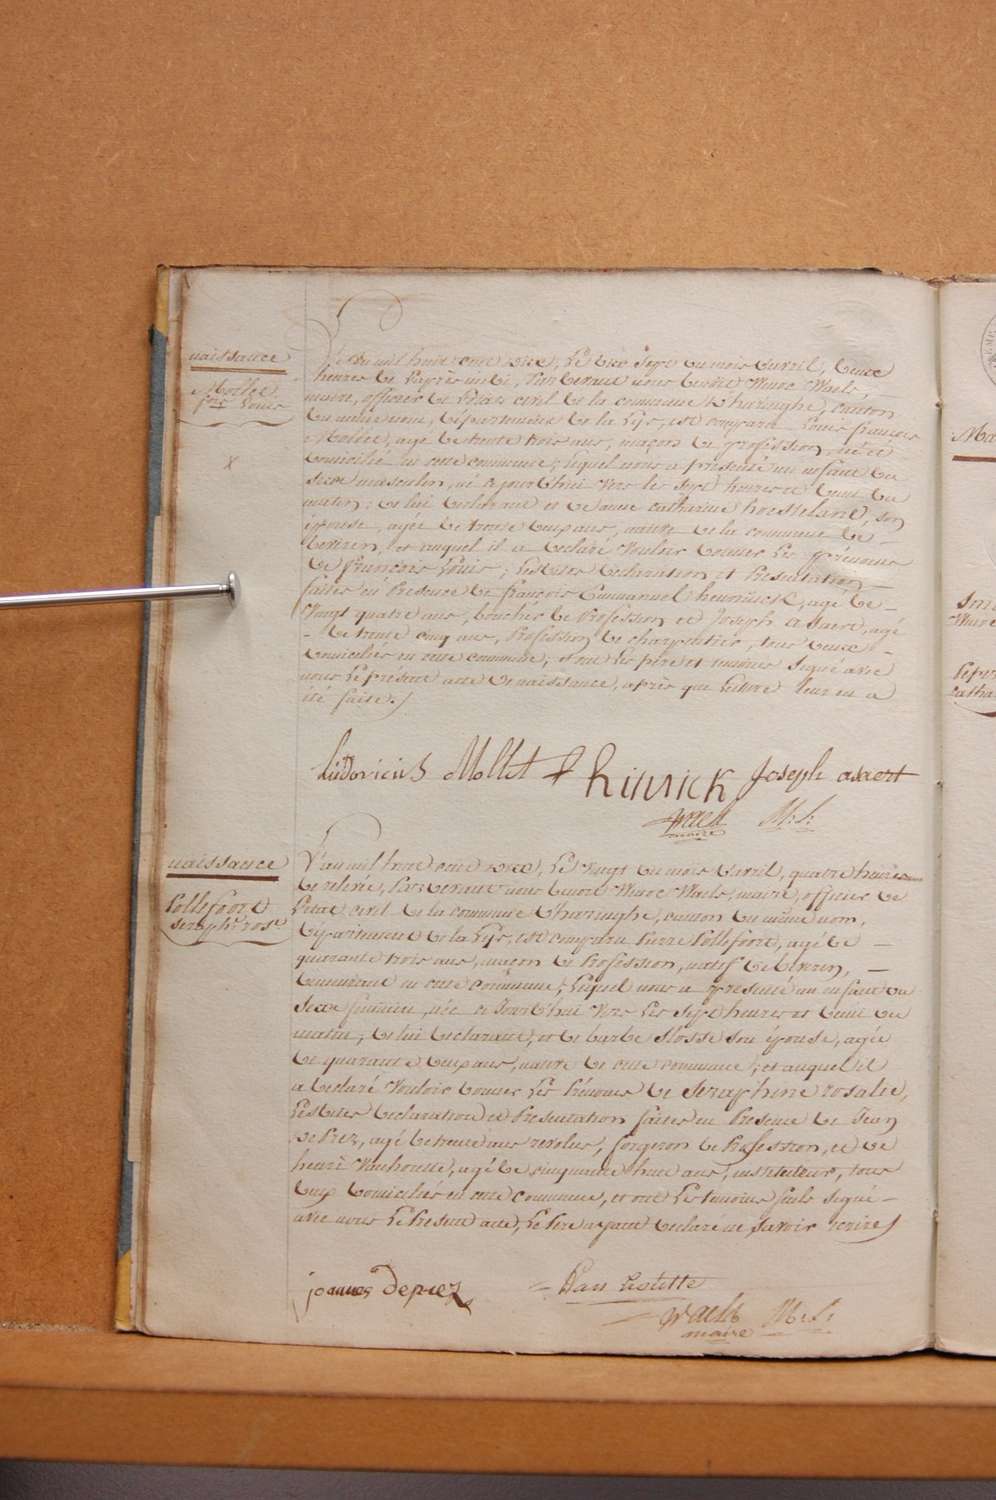 naissance
Mollet
fois Louis
x
L'an mil huit cent onze, Le dix Sept du mois d'avril, deux
heures de L'après midi, Pardevant nous Benoit Maels,
maire, officier de L'état civil de la commune d'haringhe, canton
du même nom, département de la Lys, est comparu Louis françois
Molèt, agé de trente trois ans, maçon de profession, né et
domicilié en cette commune; lequel nous a présenté un enfant du
sexe masculin, né ce jourd'hui vers les Sept heures et demi du
matin; de lui déclarant et de anne catharine hoestelandt, son
épouse, agée de trente deux ans, native de la commune de
beveren, et auquel il a déclaré vouloir donner Les prénoms
de François Louis; Lesdites declaration et Presentation
faites en Presence de françois Emmanuel henrinck, agé de
vingt quatre ans, boucher de Profession et Joseph asaert, agé
de trente cinq ans, Profession de charpentier, tous deux
domiciliés en cette commune, et ont Les père et temoins Signé avec
nous Le présent acte de naissance, après que Lecture leur en a
été faite.
Ludovicus Mollet f hinrick Joseph asaert
Maels M. L.
maire
naissance
Pollefoort
seraphe rose
L'an mil huit cent onze, Le vingt du mois d'avril, quatre heures
de relevée, Pardevant nous benoit Maels, maire, officier de
L'etat civil de la commune d'haringhe, canton du même nom,
département de la Lys, est comparu Pierre Pollefoort, agé de
quarante trois ans, maçon de Profession, natif de beveren,
demeurant en cette commune; Lequel nous a presenté un enfant du
Sexe feminin, née ce Jourd'hui vers Les Sept heures et demi du
matin; de lui declarant, et de barbe Slosse son épouse, agée
de quarante deux ans, native de cette commune; et auquel il
a declaré vouloir donner Les Prénoms de Seraphine rosalie,
Lesdites declaration et Presentation faites en Presence de Jean
DePrez, agé de trente ans revolus, forgeron de Profession, et de
henri Vanhoutte, agé de cinquante huit ans, instituteur, tous
deux domiciliés en cette commune, et ont Les temoins seuls signé
avec nous Le Présent acte, Le Père ayant declaré ne savoir ecrire
joannes deprez
Maels M. L.
maire